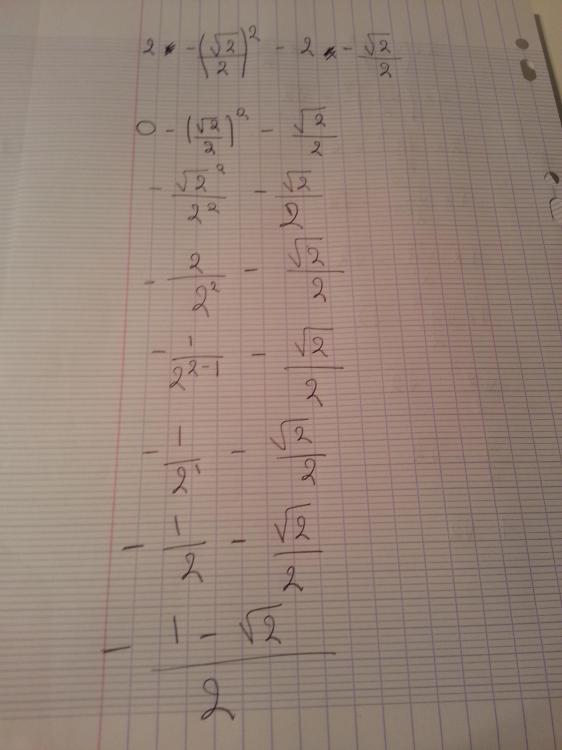 2 • -(√2/2)² - 2 • - √2/2
0 - (√2/2)² - √2/2
- √2²/2² - √2/2
- 2/2² - √2/2
- 1/2²⁻¹ - √2/2
- 1/2¹ - √2/2
- 1/2 - √2/2
- (1 - √2)/2